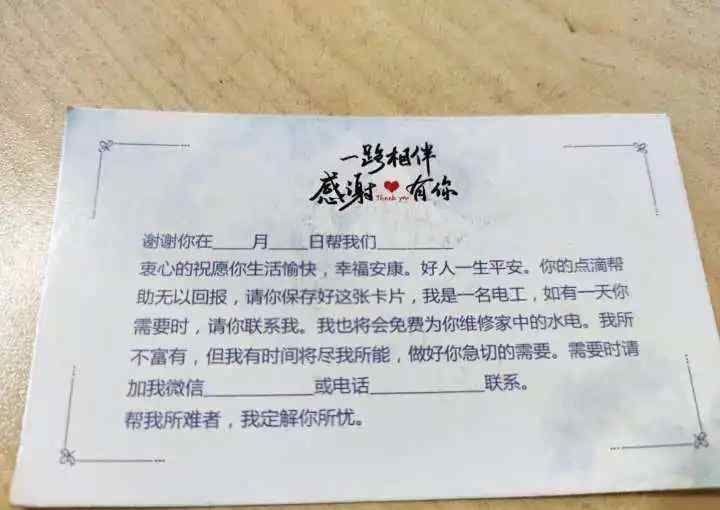 一路相伴
感谢❤有你
Thank you
谢谢你在____月____日帮我们________
衷心的祝愿你生活愉快，幸福安康。好人一生平安。你的点滴帮
助无以回报，请你保存好这张卡片，我是一名电工，如有一天你
需要时，请你联系我。我也将会免费为你维修家中的水电。我所
不富有，但我有时间将尽我所能，做好你急切的需要。需要时请
加我微信__________或电话__________联系。
帮我所难者，我定解你所忧。